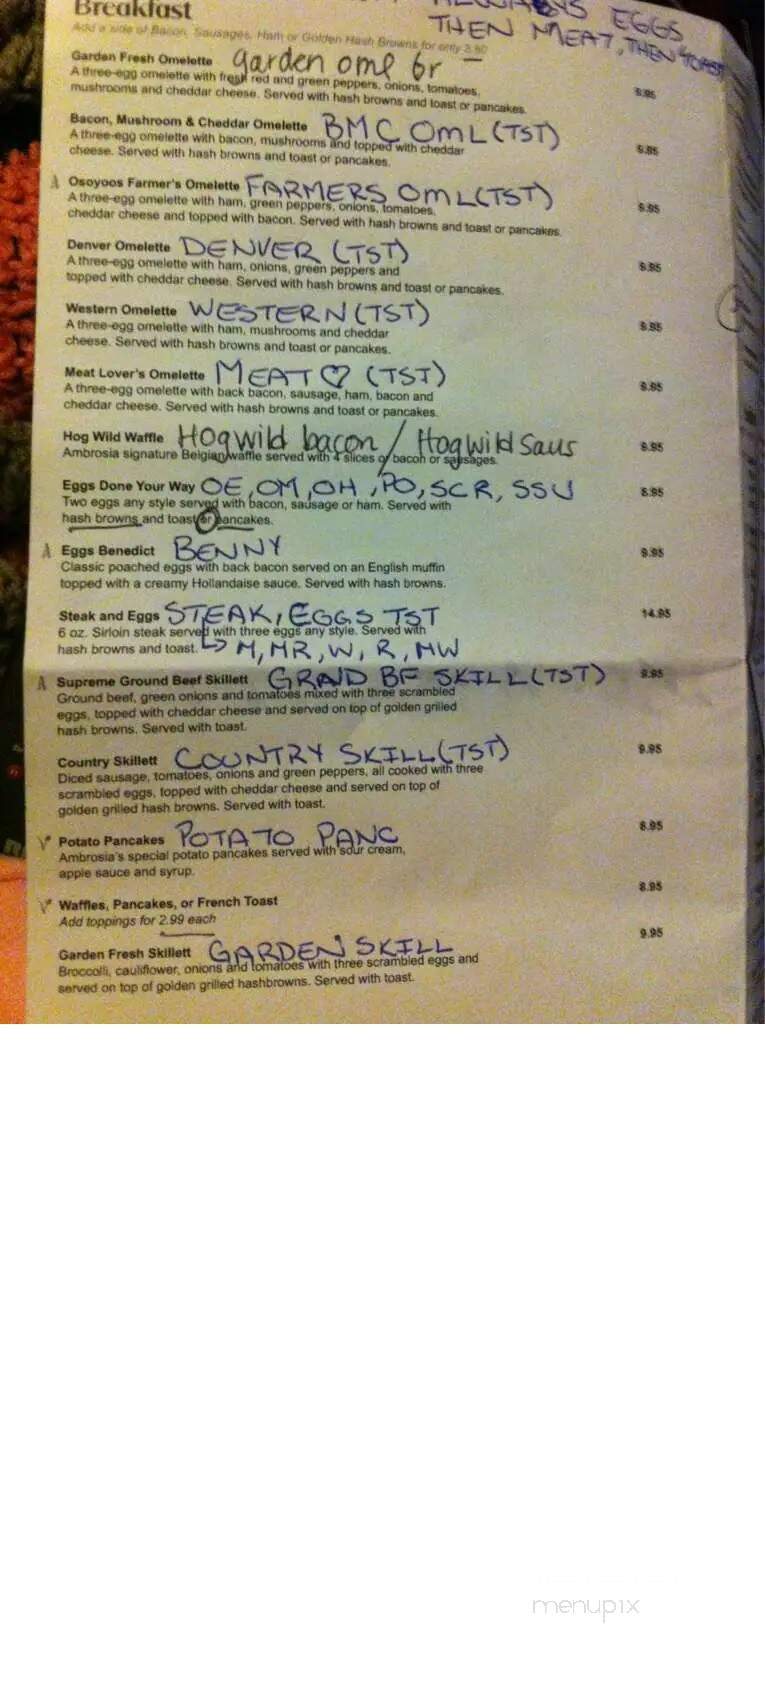 Breakfast
ALWAYS EGGS
THEN MEAT, THEN TOAST
Add a side of Bacon, Sausages, Ham or Golden Hash Browns for only 3.50
Garden Fresh Omelette garden ome br
A three-egg omelette with fresh red and green peppers, onions, tomatoes, 9.95
mushrooms and cheddar cheese. Served with hash browns and toast or pancakes.
Bacon, Mushroom & Cheddar Omelette BMC OML (TST)
A three-egg omelette with bacon, mushrooms and topped with cheddar 9.95
cheese. Served with hash browns and toast or pancakes.
A Osoyoos Farmer's Omelette FARMERS OML (TST)
A three-egg omelette with ham, green peppers, onions, tomatoes, 9.95
cheddar cheese and topped with bacon. Served with hash browns and toast or pancakes.
Denver Omelette DENVER (TST)
A three-egg omelette with ham, onions, green peppers and 9.95
topped with cheddar cheese. Served with hash browns and toast or pancakes.
Western Omelette WESTERN (TST)
A three-egg omelette with ham, mushrooms and cheddar 9.95
cheese. Served with hash browns and toast or pancakes.
Meat Lover's Omelette MEAT ♡ (TST)
A three-egg omelette with back bacon, sausage, ham, bacon and 9.95
cheddar cheese. Served with hash browns and toast or pancakes.
Hog Wild Waffle Hogwild bacon / Hogwild saus 9.95
Ambrosia signature Belgian waffle served with 4 slices of bacon or sausages.
Eggs Done Your Way OE, OM, OH, PO, SCR, SSU 8.95
Two eggs any style served with bacon, sausage or ham. Served with
hash browns and toast or pancakes.
A Eggs Benedict BENNY 9.95
Classic poached eggs with back bacon served on an English muffin
topped with a creamy Hollandaise sauce. Served with hash browns.
Steak and Eggs STEAK, EGGS TST 14.95
6 oz. Sirloin steak served with three eggs any style. Served with
hash browns and toast. ↳ M, MR, W, R, MW
A Supreme Ground Beef Skillett GRND BF SKILL (TST) 9.95
Ground beef, green onions and tomatoes mixed with three scrambled
eggs, topped with cheddar cheese and served on top of golden grilled
hash browns. Served with toast.
Country Skillett COUNTRY SKILL (TST) 9.95
Diced sausage, tomatoes, onions and green peppers, all cooked with three
scrambled eggs, topped with cheddar cheese and served on top of
golden grilled hash browns. Served with toast.
V Potato Pancakes POTATO PANC 8.95
Ambrosia's special potato pancakes served with sour cream,
apple sauce and syrup.
V Waffles, Pancakes, or French Toast 8.95
Add toppings for 2.99 each
Garden Fresh Skillett GARDEN SKILL 9.95
Broccolli, cauliflower, onions and tomatoes with three scrambled eggs and
served on top of golden grilled hashbrowns. Served with toast.
menupix